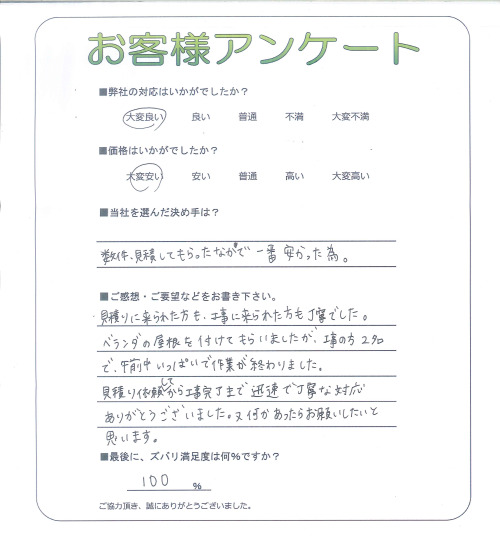 お客様アンケート
■弊社の対応はいかがでしたか?
大変良い 良い 普通 不満 大変不満
■価格はいかがでしたか?
大変安い 安い 普通 高い 大変高い
■当社を選んだ決め手は?
数件、見積してもらったなかで一番安かった為。
■ご感想・ご要望などをお書き下さい。
見積りに来られた方も、工事に来られた方も丁寧でした。
ベランダの屋根を付けてもらいましたが、工事の方2名
で、午前中いっぱいで作業が終わりました。
見積り依頼してから工事完了まで迅速で丁寧な対応
ありがとうございました。又何かあったらお願いしたいと
思います。
■最後に、ズバリ満足度は何%ですか?
100 %
ご協力頂き、誠にありがとうございました。